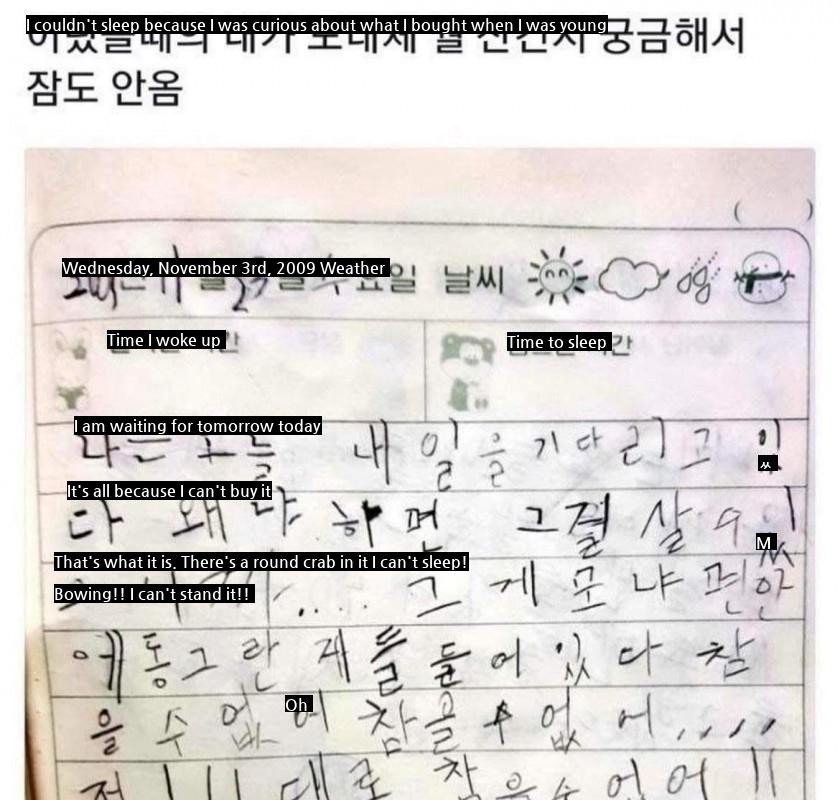 I couldn't sleep because I was curious about what I bought when I was young
궁금해서
잠도 안옴
( )
Wednesday, November 3rd, 2009 Weather
요일 날씨
Time I woke up
Time to sleep
I am waiting for tomorrow today
나는 오늘 내일을 기다리고 있
ㅆ
It's all because I can't buy it
다 왜냐하면 그걸 살 수 이
M
That's what it is. There's a round crab in it I can't sleep!
그게 모냐면 안
Bowing!! I can't stand it!!
에 동그란 게 들 들어 있다 참
Oh
을 수 없어 참을 수 없어....
대로 참을 수 없어!!